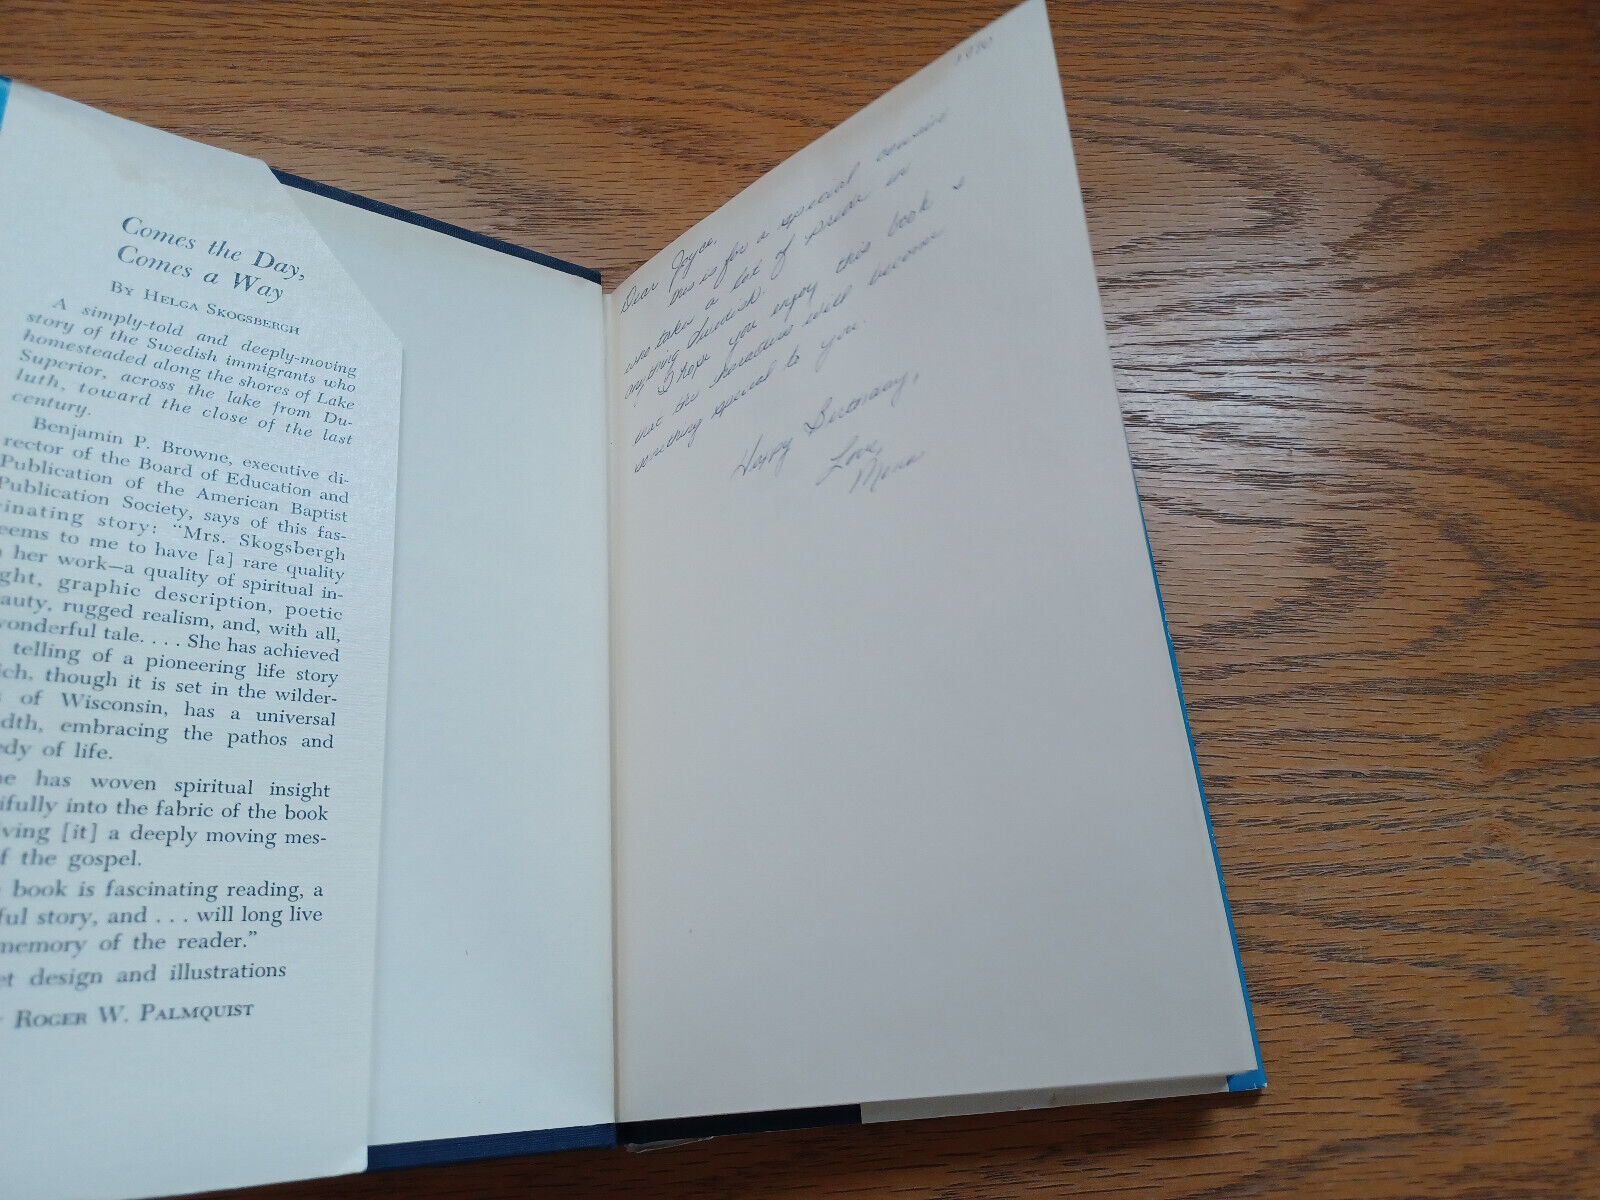 Comes the Day,
Comes a Way
By Helga Skogsbergh
A simply-told and deeply-moving
story of the Swedish immigrants who
homesteaded along the shores of Lake
Superior, across the lake from Du-
luth, toward the close of the last
century.
Benjamin P. Browne, executive di-
rector of the Board of Education and
Publication of the American Baptist
Publication Society, says of this fas-
cinating story: “Mrs. Skogsbergh
eems to me to have [a] rare quality
her work—a quality of spiritual in-
ght, graphic description, poetic
auty, rugged realism, and, with all,
wonderful tale. . . . She has achieved
telling of a pioneering life story
ich, though it is set in the wilder-
of Wisconsin, has a universal
dth, embracing the pathos and
edy of life.
he has woven spiritual insight
ifully into the fabric of the book
iving [it] a deeply moving mes-
f the gospel.
book is fascinating reading, a
ful story, and . . . will long live
memory of the reader.”
et design and illustrations
Roger W. Palmquist
Dear Joyce,
this is for a special cousin
who takes a lot of pride in
anything Swedish.
I hope you enjoy this book &
that the characters will become
something special to you.
Happy Birthday,
Love,